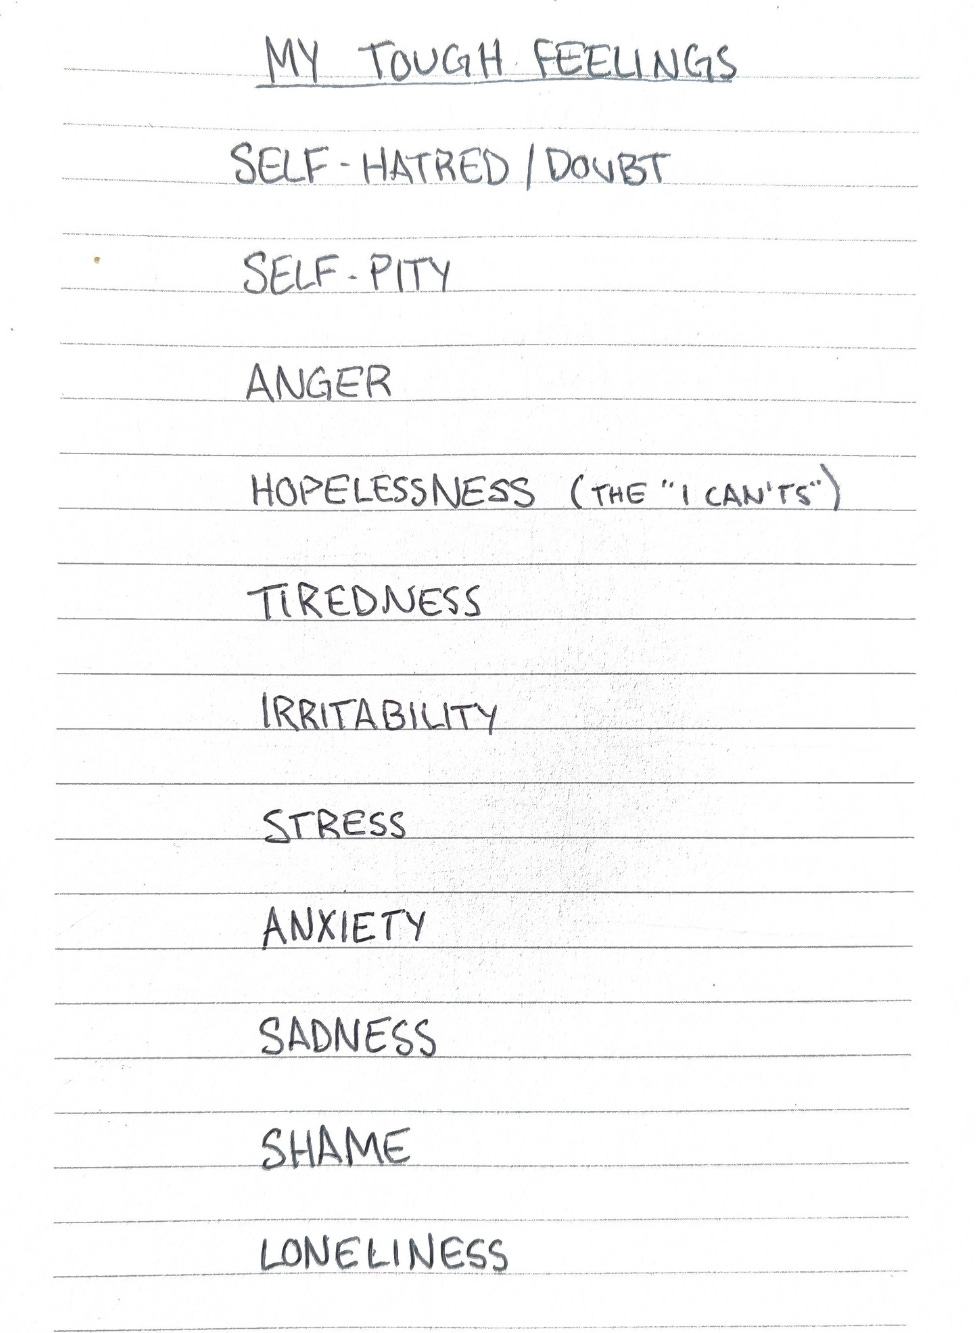 MY TOUGH FEELINGS
SELF-HATRED/DOUBT
SELF-PITY
ANGER
HOPELESSNESS (THE "I CAN'TS")
TIREDNESS
IRRITABILITY
STRESS
ANXIETY
SADNESS
SHAME
LONELINESS